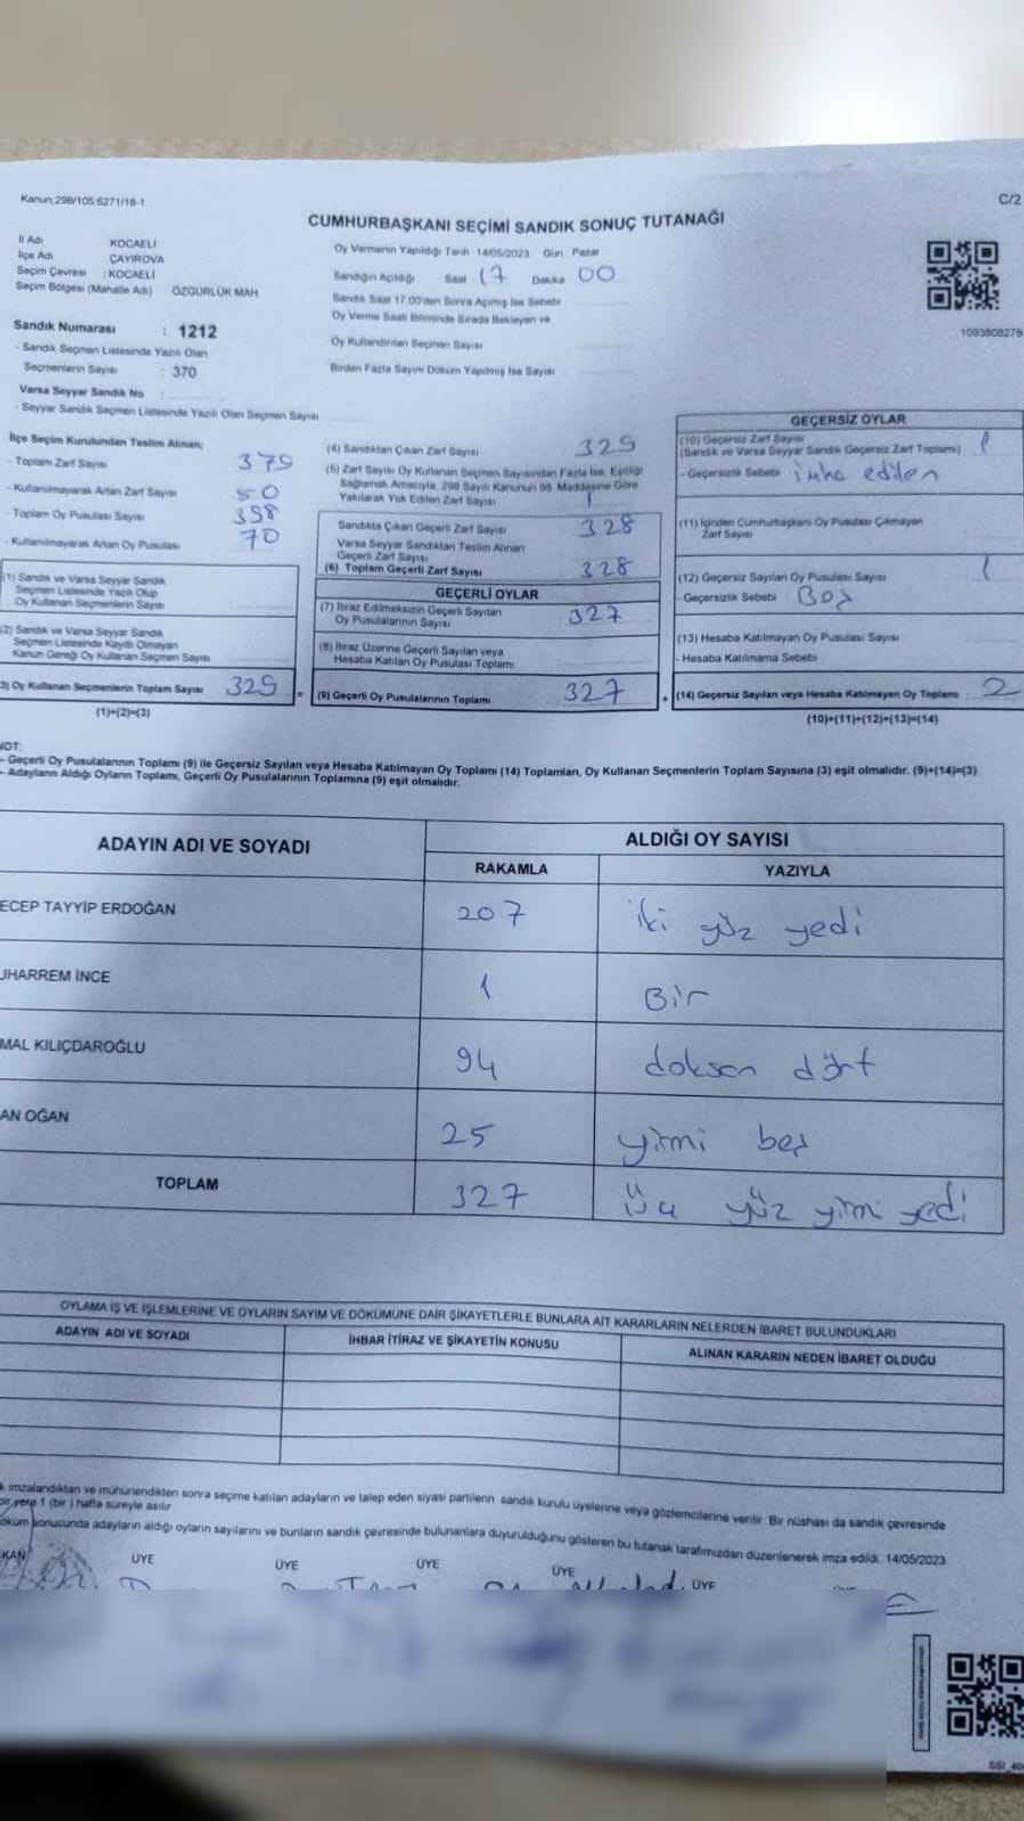 Kanun;298/105;6271/18-1
C/2
CUMHURBAŞKANI SEÇİMİ SANDIK SONUÇ TUTANAĞI
İl Adı KOCAELİ
İlçe Adı ÇAYIROVA
Seçim Çevresi : KOCAELİ
Seçim Bölgesi (Mahalle Adı) ÖZGÜRLÜK MAH
Oy Vermenin Yapıldığı Tarih 14/05/2023 Gün Pazar
Sandığın Açıldığı Saat 17 Dakika 00
Sandık Saat 17.00'den Sonra Açılmış İse Sebebi
Oy Verme Saati Bitiminde Sırada Bekleyen ve
Oy Kullandırılan Seçmen Sayısı
Birden Fazla Sayım Döküm Yapılmış İse Sayısı
1093808276
Sandık Numarası : 1212
- Sandık Seçmen Listesinde Yazılı Olan
Seçmenlerin Sayısı : 370
Varsa Seyyar Sandık No :
- Seyyar Sandık Seçmen Listesinde Yazılı Olan Seçmen Sayısı
İlçe Seçim Kurulundan Teslim Alınan;
- Toplam Zarf Sayısı 379
- Kullanılmayarak Artan Zarf Sayısı 50
- Toplam Oy Pusulası Sayısı 398
- Kullanılmayarak Artan Oy Pusulası 70
1) Sandık ve Varsa Seyyar Sandık
Seçmen Listesinde Yazılı Olup
Oy Kullanan Seçmenlerin Sayısı
2) Sandık ve Varsa Seyyar Sandık
Seçmen Listesinde Kaydı Olmayan
Kanun Gereği Oy Kullanan Seçmen Sayısı
3) Oy Kullanan Seçmenlerin Toplam Sayısı 329
(1)+(2)=(3)
(4) Sandıktan Çıkan Zarf Sayısı 329
(5) Zarf Sayısı Oy Kullanan Seçmen Sayısından Fazla İse, Eşitliği
Sağlamak Amacıyla, 298 Sayılı Kanunun 98. Maddesine Göre
Yakılarak Yok Edilen Zarf Sayısı 1
Sandıkta Çıkan Geçerli Zarf Sayısı 328
Varsa Seyyar Sandıktan Teslim Alınan
Geçerli Zarf Sayısı
(6) Toplam Geçerli Zarf Sayısı 328
GEÇERLİ OYLAR
(7) İtiraz Edilmeksizin Geçerli Sayılan
Oy Pusulalarının Sayısı 327
(8) İtiraz Üzerine Geçerli Sayılan veya
Hesaba Katılan Oy Pusulası Toplamı
= (9) Geçerli Oy Pusulalarının Toplamı 327
GEÇERSİZ OYLAR
(10) Geçersiz Zarf Sayısı
(Sandık ve Varsa Seyyar Sandık Geçersiz Zarf Toplamı) 1
- Geçersizlik Sebebi imha edilen
(11) İçinden Cumhurbaşkanı Oy Pusulası Çıkmayan
Zarf Sayısı
(12) Geçersiz Sayılan Oy Pusulası Sayısı 1
- Geçersizlik Sebebi Boş
(13) Hesaba Katılmayan Oy Pusulası Sayısı
- Hesaba Katılmama Sebebi
+ (14) Geçersiz Sayılan veya Hesaba Katılmayan Oy Toplamı 2
(10)+(11)+(12)+(13)=(14)
NOT:
- Geçerli Oy Pusulalarının Toplamı (9) ile Geçersiz Sayılan veya Hesaba Katılmayan Oy Toplamı (14) Toplamları, Oy Kullanan Seçmenlerin Toplam Sayısına (3) eşit olmalıdır. (9)+(14)=(3)
- Adayların Aldığı Oyların Toplamı, Geçerli Oy Pusulalarının Toplamına (9) eşit olmalıdır.
ADAYIN ADI VE SOYADI
ALDIĞI OY SAYISI
RAKAMLA YAZIYLA
ECEP TAYYİP ERDOĞAN 207 iki yüz yedi
UHARREM İNCE 1 Bir
MAL KILIÇDAROĞLU 94 doksan dört
AN OĞAN 25 yirmi beş
TOPLAM 327 üç yüz yirmi yedi
OYLAMA İŞ VE İŞLEMLERİNE VE OYLARIN SAYIM VE DÖKÜMÜNE DAİR ŞİKAYETLERLE BUNLARA AİT KARARLARIN NELERDEN İBARET BULUNDUKLARI
ADAYIN ADI VE SOYADI İHBAR İTİRAZ VE ŞİKAYETİN KONUSU ALINAN KARARIN NEDEN İBARET OLDUĞU
imzalandıktan ve mühürlendikten sonra seçime katılan adayların ve talep eden siyasi partilerin sandık kurulu üyelerine veya gözlemcilerine verilir. Bir nüshası da sandık çevresinde
bir yere 1 (bir) hafta süreyle asılır
döküm sonucunda adayların aldığı oyların sayılarını ve bunların sandık çevresinde bulunanlara duyurulduğunu gösteren bu tutanak tarafımızdan düzenlenerek imza edildi. 14/05/2023
KAN ÜYE ÜYE ÜYE ÜYE ÜYE